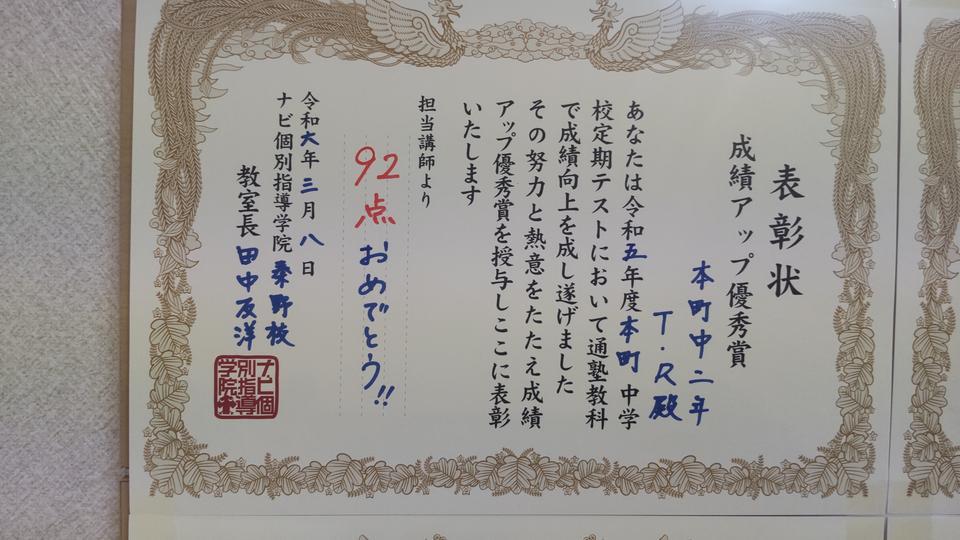 表彰状
成績アップ優秀賞
本町中二年
T.R殿
あなたは令和五年度本町中学
校定期テストにおいて通塾教科
で成績向上を成し遂げました
その努力と熱意をたたえ成績
アップ優秀賞を授与しここに表彰
いたします
担当講師より
92点おめでとう!!
令和六年三月八日
ナビ個別指導学院桑野校
教室長田中友洋
ナビ個
別指導
学院